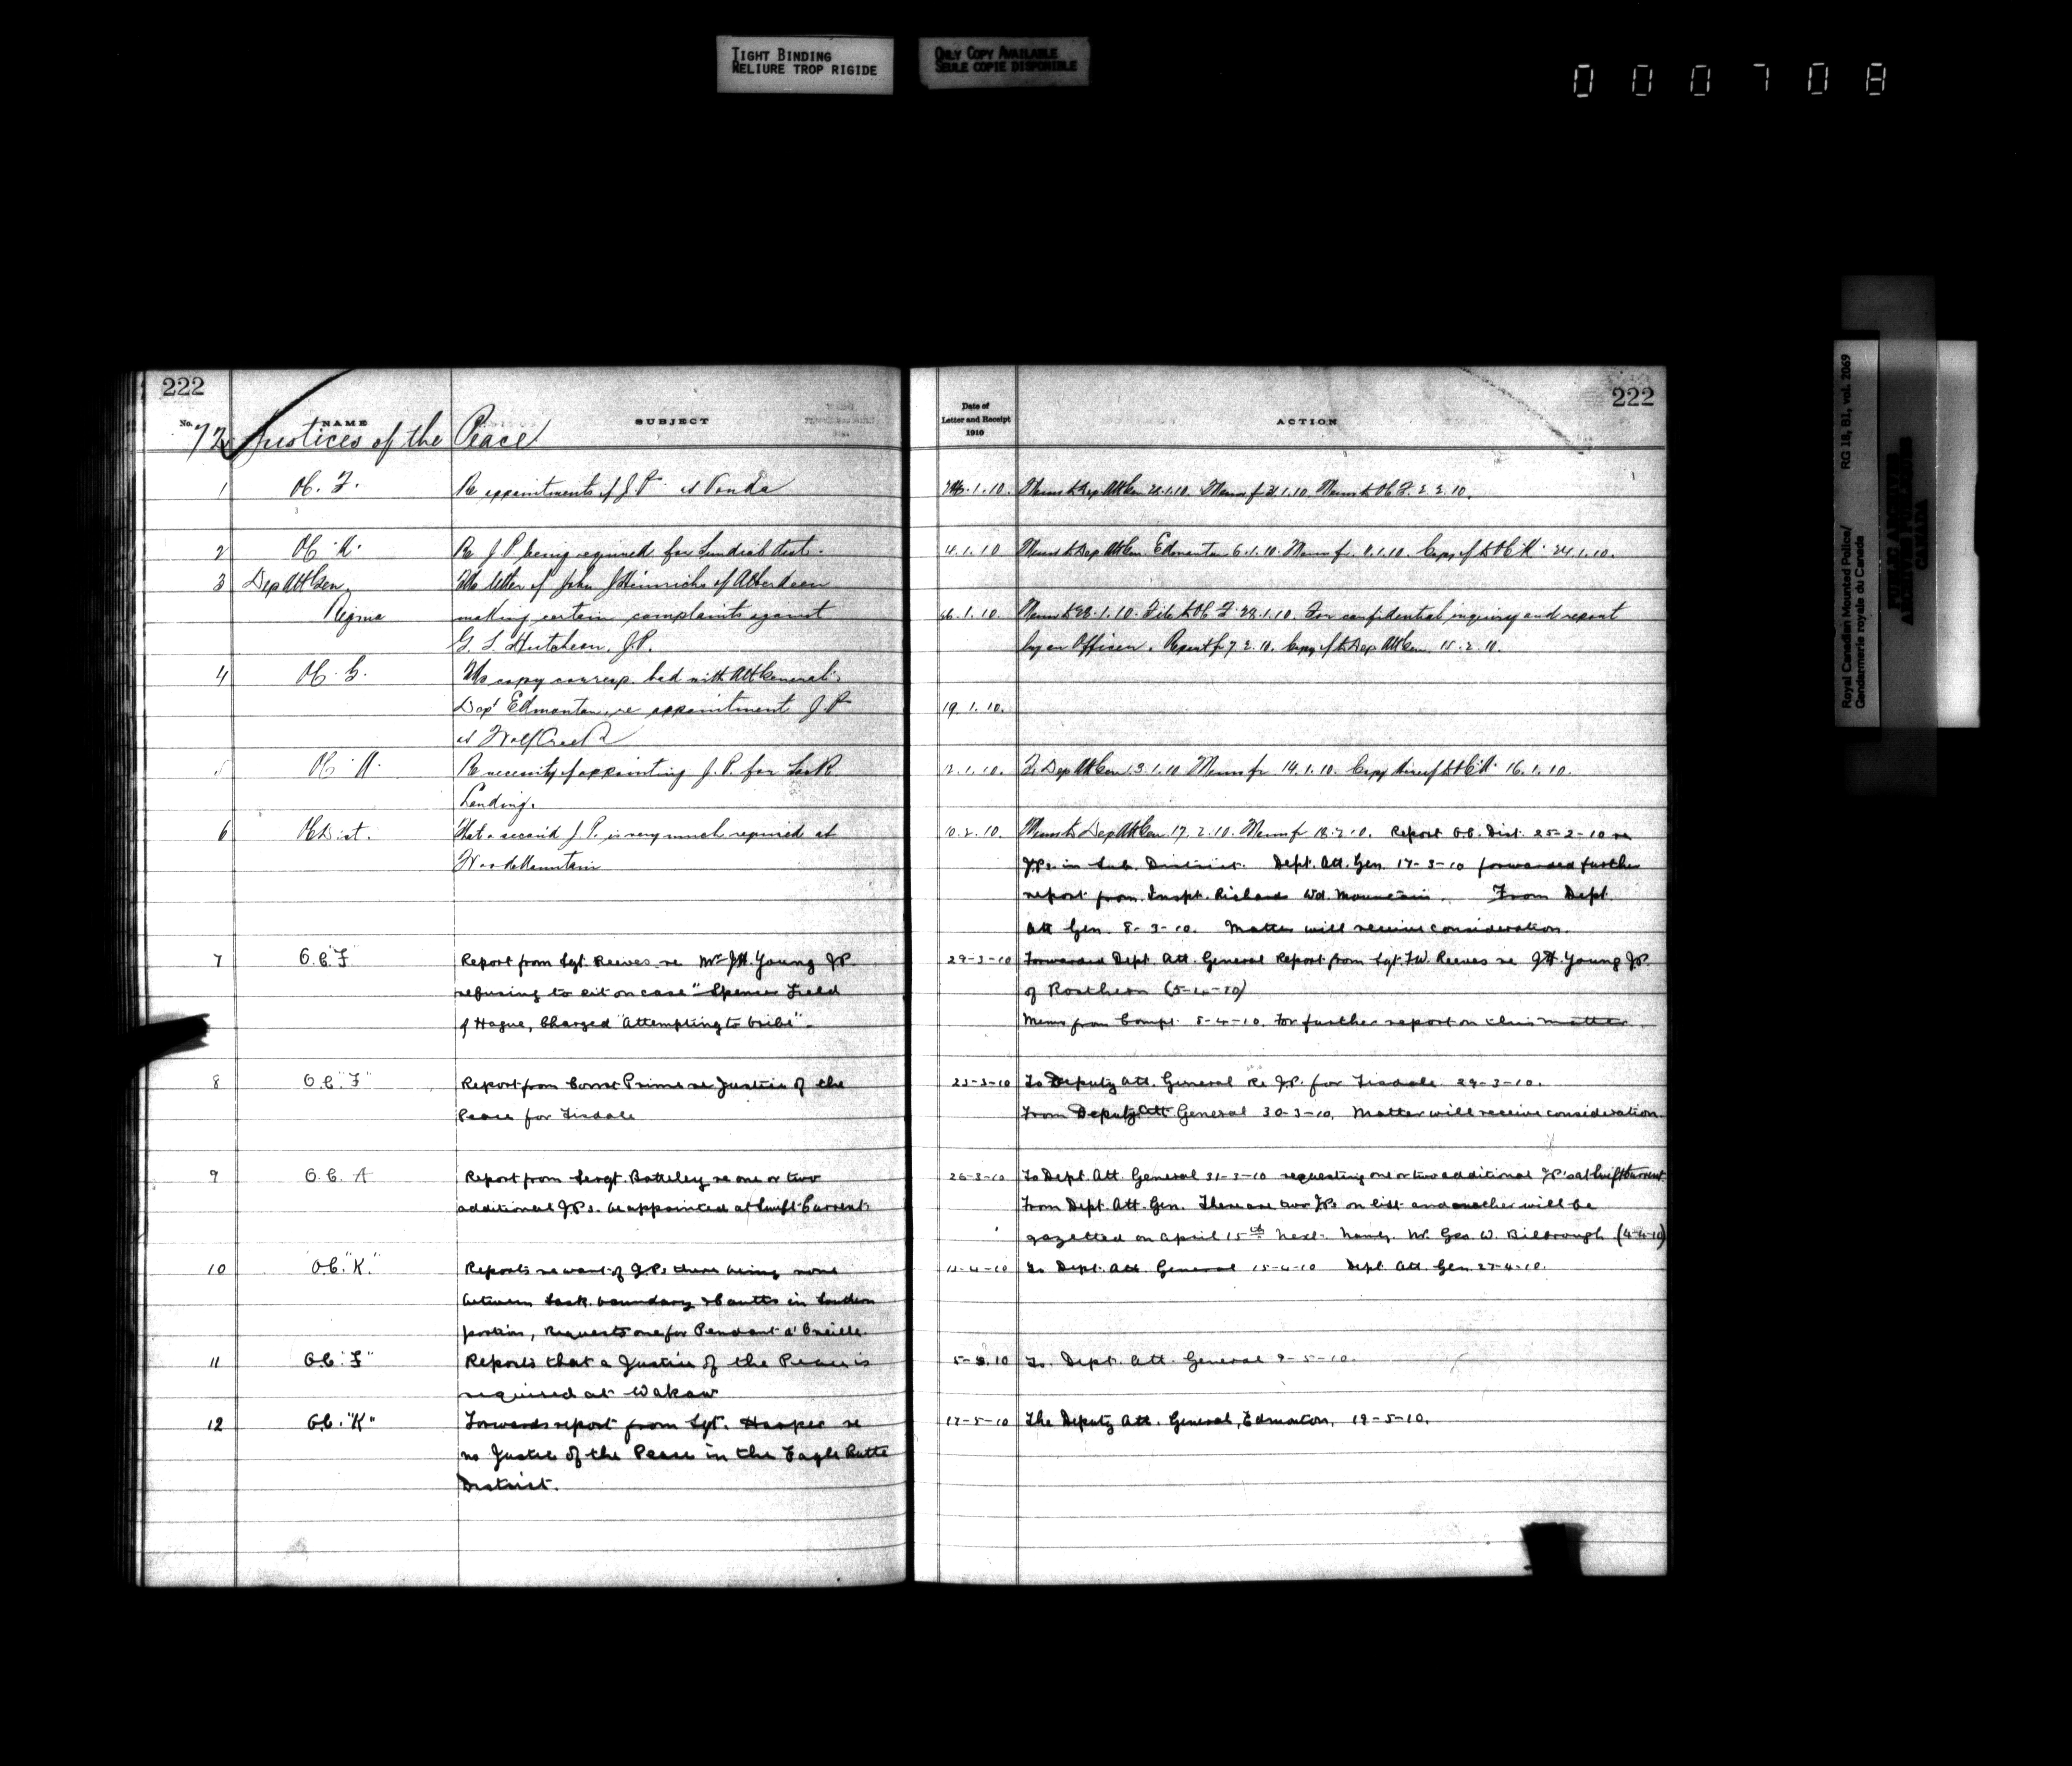 TIGHT BINDING
RELIURE TROP RIGIDE
ONLY COPY AVAILABLE
SEULE COPIE DISPONIBLE
000708
222
No. NAME SUBJECT
72 Justices of the Peace
1 OC. F. Re appointments of J.P. at Vonda
2 OC "K" Re J.P. being required for Sundial dist.
3 Dep Att Gen Ws letter of John J Heinrichs of Aberdeen
Regina making certain complaints against
G. L. Hutcheon. J.P.
4 OC. G. Ws copy corresp. had with Att General's
Dept Edmonton, re appointment J.P.
at Wolf Creek
5 OC "K" Re necessity of appointing J.P. for
Landing.
6 OC Dist. That a second J.P. is very much required at
Wood Mountain
7 O.C. "F" Report from Sgt. Reeves re Mr J.H. Young J.P.
refusing to sit on case "Spencer Field
of Hague, Charged "Attempting to bribe".
8 O.C. "F" Report from Const Prime re Justice of the
Peace for Tisdale
9 O.C. A Report from Sergt. Batteley re one or two
additional J.P.s. be appointed at Swift Current
10 O.C. "K." Reports re want of J.P.s there being none
between Sask. boundary & Coutts in Southern
portion, Requests one for Pendant d' Oreille.
11 O.C. "F" Reports that a Justice of the Peace is
required at Wakaw
12 O.C. "K" Forwards report from Sgt. Harper re
no Justice of the Peace in the Eagle Butte
District.
222
Date of
Letter and Receipt
1910
ACTION
.1.10. Memo to Dep Att Gen 21.1.10. Memo f 31.1.10 Memo to OC F. 2.2.10.
4.1.10 Memo to Dep Att Gen Edmonton 6.1.10. Memo f. .1.10. Copy of to OC "K" 24.1.10.
26.1.10. Memo to 28.1.10. File to OC F. 28.1.10. For confidential inquiry and report
by an Officer. Report f 7.2.10. Copy of to Dep Att Gen 15.2.10.
19.1.10.
12.1.10. To Dep Att Gen 13.1.10 Memo fr 14.1.10. Copy thereof to OC "K" 16.1.10.
10.2.10. Memo to Dep Att Gen 17.2.10. Memo f 18.2.10. Report OC. Dist. 25-2-10 re
J.P.s. in Sub. District. Dept. Att. Gen. 17-3-10 forwarded further
report from Inspt. Richards Wd. Mountain. From Dept
Att Gen. 8-3-10. Matter will receive consideration.
29-3-10 Forwarded Dept. Att. General Report from Sgt. F.W. Reeves re J.H. Young J.P.
of Rosthern (5-4-10)
Memo from Compt. 5-4-10. For further report on this matter.
23-3-10 To Deputy Att. General Re J.P. for Tisdale. 29-3-10.
From Deputy Att General 30-3-10. Matter will receive consideration
26-3-10 To Dept. Att. General 31-3-10 requesting one or two additional J.P.'s at Swift Current
From Dept. Att. Gen. There are two J.P.s on list and another will be
gazetted on April 15th next. Namly. Mr. Geo. W. Bilbrough (4-4-10)
12-4-10 To Dept. Att. General 15-4-10 Dept. Att. Gen 27-4-10.
5-5.10 To. Dept. Att. General 9-5-10.
17-5-10 The Deputy Att. General, Edmonton, 19-5-10.
Royal Canadian Mounted Police/ RG 18, B1, vol. 2069
Gendarmerie royale du Canada
PUBLIC ARCHIVES
ARCHIVES PUBLIQUES
CANADA